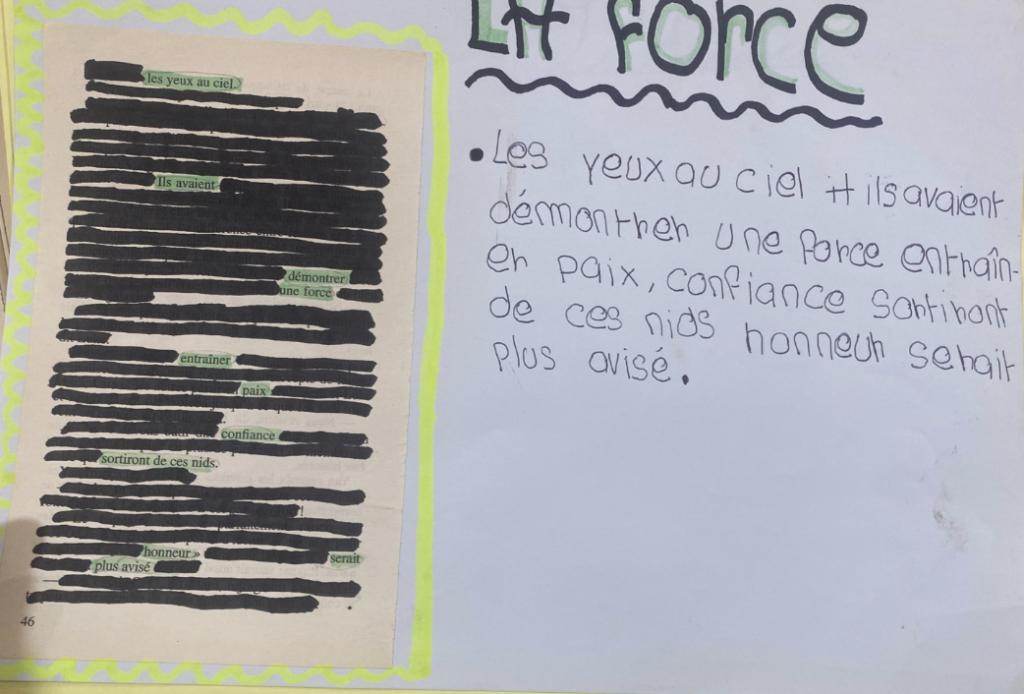 les yeux au ciel.
Ils avaient
démontrer
une force
entraîner
paix
confiance
sortiront de ces nids.
!
honneur »
serait
plus avisé
46
LA force
• Les yeux au ciel # ils avaient
démontrer une force entraîn-
er paix, confiance sortiront
de ces nids honneur serait
plus avisé.